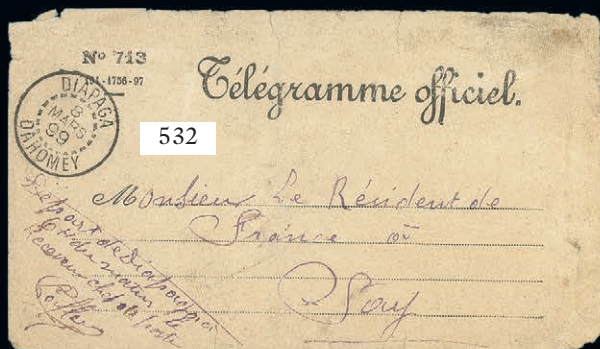 Nº 713
191-1756-97
Télégramme officiel.
DIAPAGA
8
MARS
99
DAHOMEY
532
Monsieur Le Résident de
France à
Say
Départ de Diapaga
du matin le
Receveur chef de poste